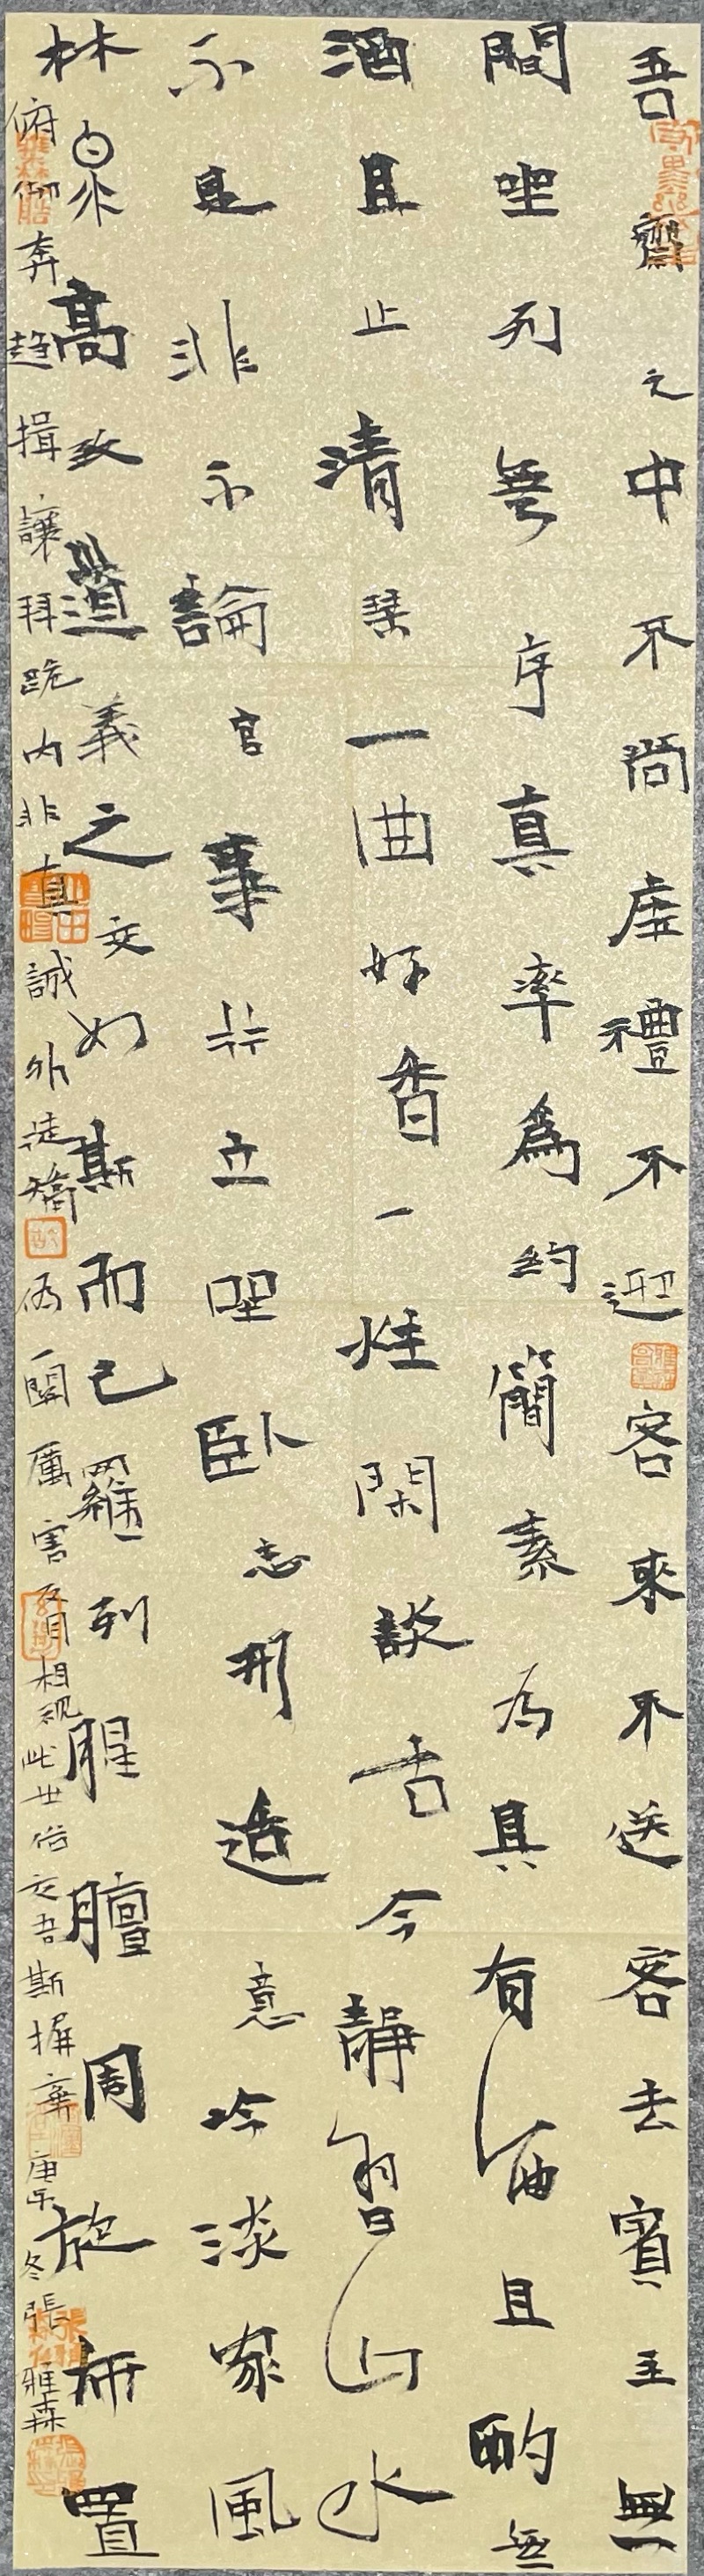 吾齋之中不尚虛禮不迎客來不送客去賓主無
間坐列無序真率為約簡素為具有酒且酌無
酒且止清琹一曲好香一炷閑談古今靜翫山水
不言是非不論官事行立坐臥忘形適意冷淡家風
林泉高致道義之交如斯而已羅列腥膻周旋布置
俯仰奔趨揖讓拜跪內非真誠外徒矯偽一關厲害反目相視此世俗交吾斯摒棄庚子冬張雅森